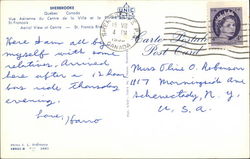 SHERBROOKE
Quebec Canada
Vue Aérienne du Centre de la Ville et la
St. Francois
Aerial View of Centre — St. Francis
Here I am all by
myself with some
relatives. Arrived
here after a 12 hour
bus ride Thursday
evening.
Love,
CANADA
Carte Postale
Post Card
Miss Olive O. Robinson
1117 Morningside Ave
Schenectady, N. Y.
U. S. A.